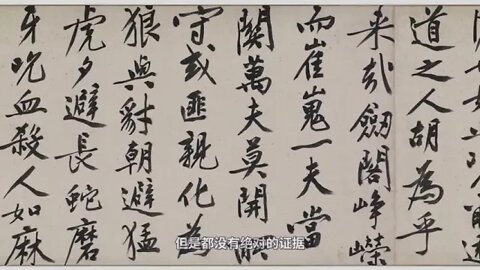 道之人胡為乎
来哉劒閣崢嶸
而崔嵬一夫當
關萬夫莫開所
守或匪親化為
狼與豺朝避猛
虎夕避長蛇磨
牙吮血殺人如麻
但是都没有绝对的证据